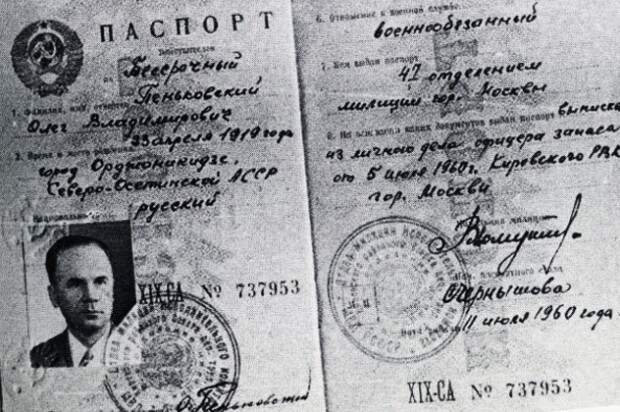 ПАСПОРТ
Действителен
на Бессрочный
1. Фамилия, имя, отчество Пеньковский
Олег Владимирович
23 апреля 1919 года
2. Время и место рождения
город Орджоникидзе,
Северо-Осетинской АССР
русский
XIX-СА № 737953
О. Пеньковский
6. Отношение к военной службе
военнообязанный
7. Кем выдан паспорт
41 отделением
милиции гор. Москвы
8. На основании каких документов выдан паспорт выписка
из личного дела офицера запаса
от 5 июля 1960г. Кировского РВК
гор. Москвы
Чернышова
11 июля 1960 года.
XIX-СА № 737953